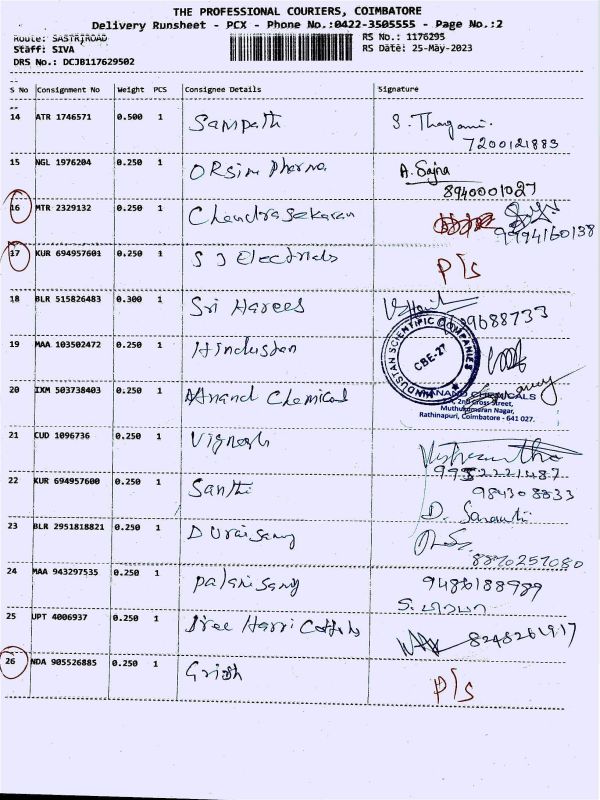 THE PROFESSIONAL COURIERS, COIMBATORE
Delivery Runsheet - PCX - Phone No.:0422-3505555 - Page No.:2
Route: SASTRIROAD
RS No.: 1176295
Staff: SIVA
RS Date: 25-May-2023
DRS No.: DCJB117629502
S No Consignment No Weight PCS Consignee Details Signature
14 ATR 1746571 0.500 1 Sampath S. Thagami.
7200121883
15 NGL 1976204 0.250 1 ORsim Pharma A. Sajna
8940001027
16 MTR 2329132 0.250 1 Chandrasekaran
9994160138
17 KUR 694957601 0.250 1 S J Electricals P/s
18 BLR 515826483 0.300 1 Sri Harees
9688733
19 MAA 103502472 0.250 1 Hindustan
HINDUSTAN SCIENTIFIC COMPANIES
CBE-27
20 IXM 503738403 0.250 1 Anand Chemical
ANAND CHEMICALS
2nd Cross Street,
Muthukumaran Nagar,
Rathinapuri, Coimbatore - 641 027.
21 CUD 1096736 0.250 1 Vignesh
9952221487
22 KUR 694957600 0.250 1 Santhi 984308833
D. Saranti
23 BLR 2951818821 0.250 1 Duraisamy
8870257080
24 MAA 943297535 0.250 1 Palanisamy 9486188989
25 UPT 4006937 0.250 1 Sree Harri Cottons 8248261917
26 NDA 905526885 0.250 1 Girish P/s